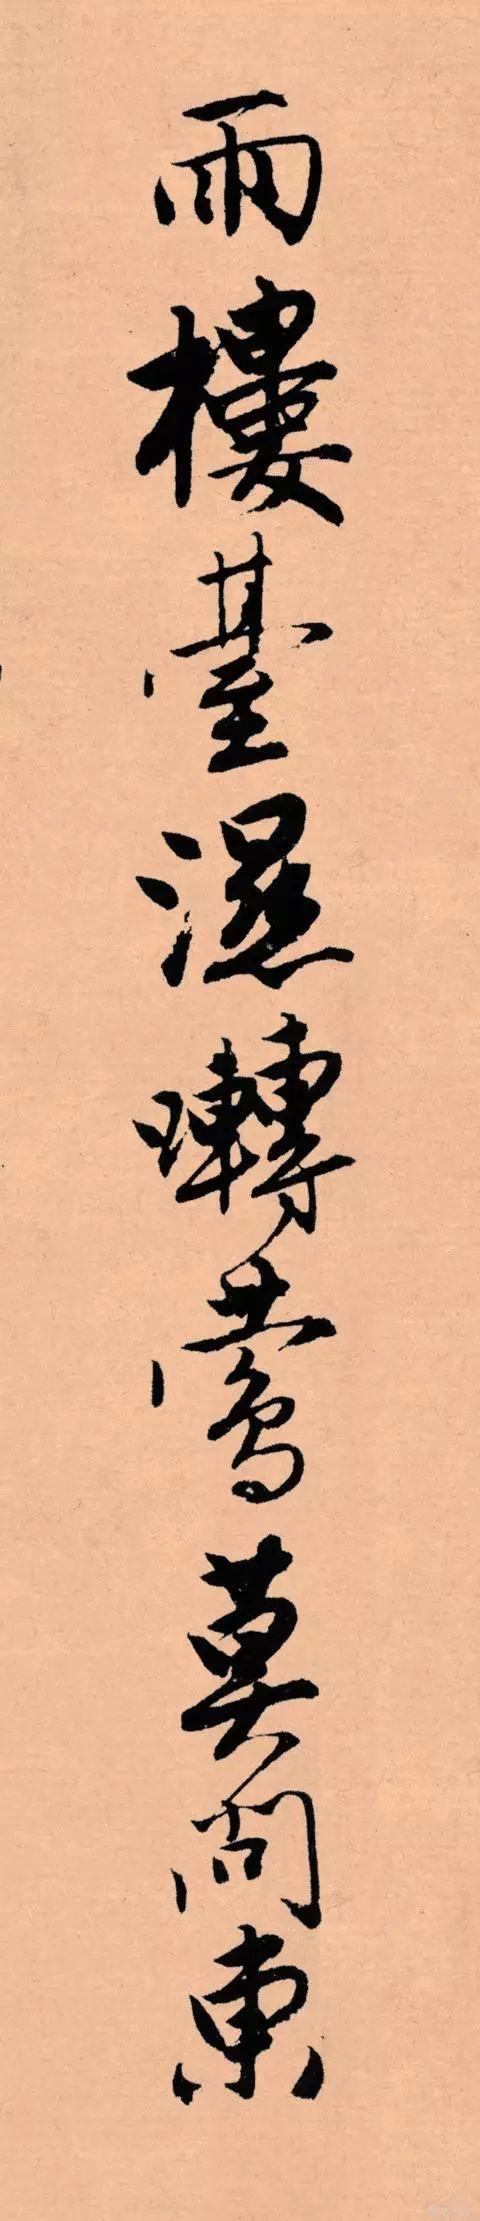 雨樓臺濕囀鶯莫問東